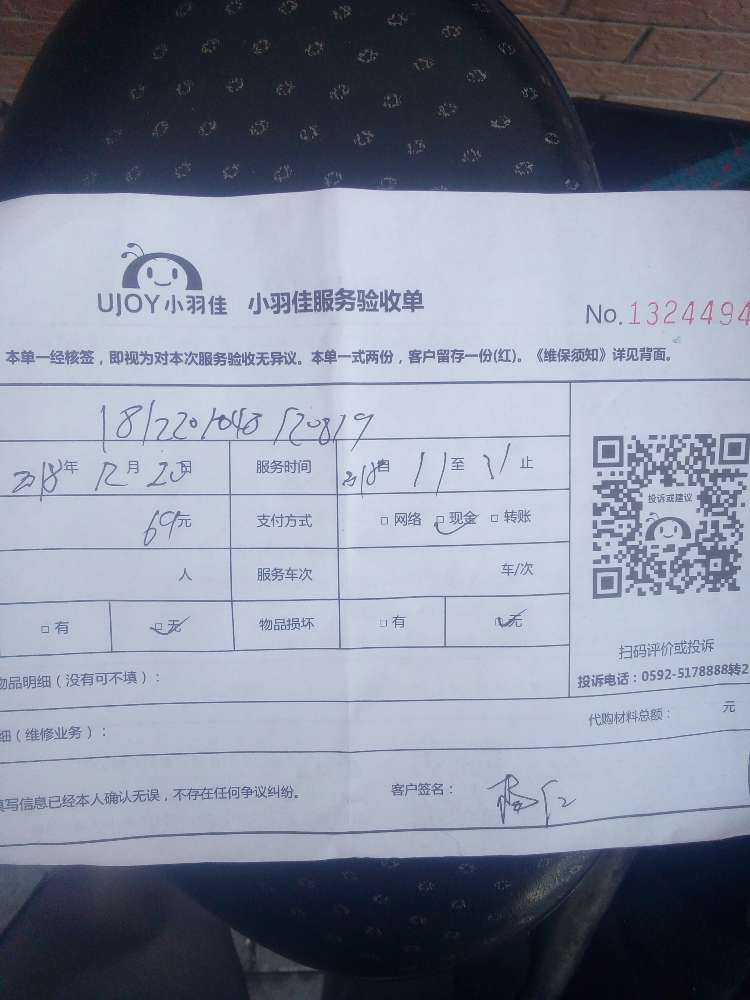 UJOY小羽佳 小羽佳服务验收单
No.1324494
本单一经核签，即视为对本次服务验收无异议。本单一式两份，客户留存一份(红)。《维保须知》详见背面。
2018年 12月 20日 服务时间 自 至 止
投诉或建议
69元 支付方式 □网络 □现金 □转账
人 服务车次 车/次
□有 □无 物品损坏 □有 □无
扫码评价或投诉
物品明细（没有可不填）：
投诉电话：0592-5178888转2
细（维修业务）：
代购材料总额： 元
填写信息已经本人确认无误，不存在任何争议纠纷。 客户签名：